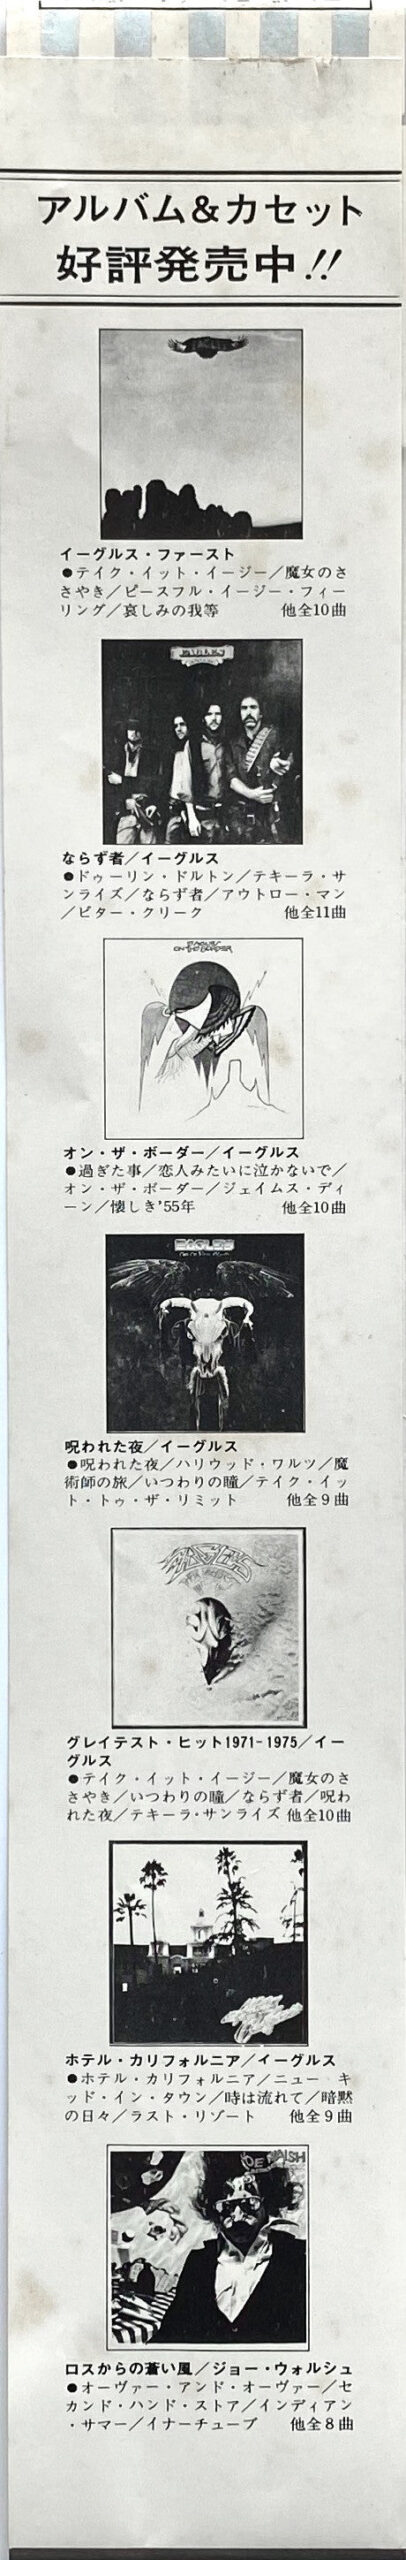 アルバム&カセット
好評発売中!!
イーグルス・ファースト
●テイク・イット・イージー／魔女のさ
さやき／ピースフル・イージー・フィー
リング／哀しみの我等 他全10曲
EAGLES
ならず者／イーグルス
●ドゥーリン・ドルトン／テキーラ・サ
ンライズ／ならず者／アウトロー・マン
／ビター・クリーク 他全11曲
EAGLES
ON THE BORDER
オン・ザ・ボーダー／イーグルス
●過ぎた事／恋人みたいに泣かないで／
オン・ザ・ボーダー／ジェイムス・ディ
ーン／懐しき'55年 他全10曲
EAGLES
呪われた夜／イーグルス
●呪われた夜／ハリウッド・ワルツ／魔
術師の旅／いつわりの瞳／テイク・イッ
ト・トゥ・ザ・リミット 他全9曲
EAGLES
グレイテスト・ヒット1971-1975／イー
グルス
●テイク・イット・イージー／魔女のさ
さやき／いつわりの瞳／ならず者／呪わ
れた夜／テキーラ・サンライズ 他全10曲
ホテル・カリフォルニア／イーグルス
●ホテル・カリフォルニア／ニュー キ
ッド・イン・タウン／時は流れて／暗黙
の日々／ラスト・リゾート 他全9曲
JOE WALSH
ロスからの蒼い風／ジョー・ウォルシュ
●オーヴァー・アンド・オーヴァー／セ
カンド・ハンド・ストア／インディアン
・サマー／イナーチューブ 他全8曲